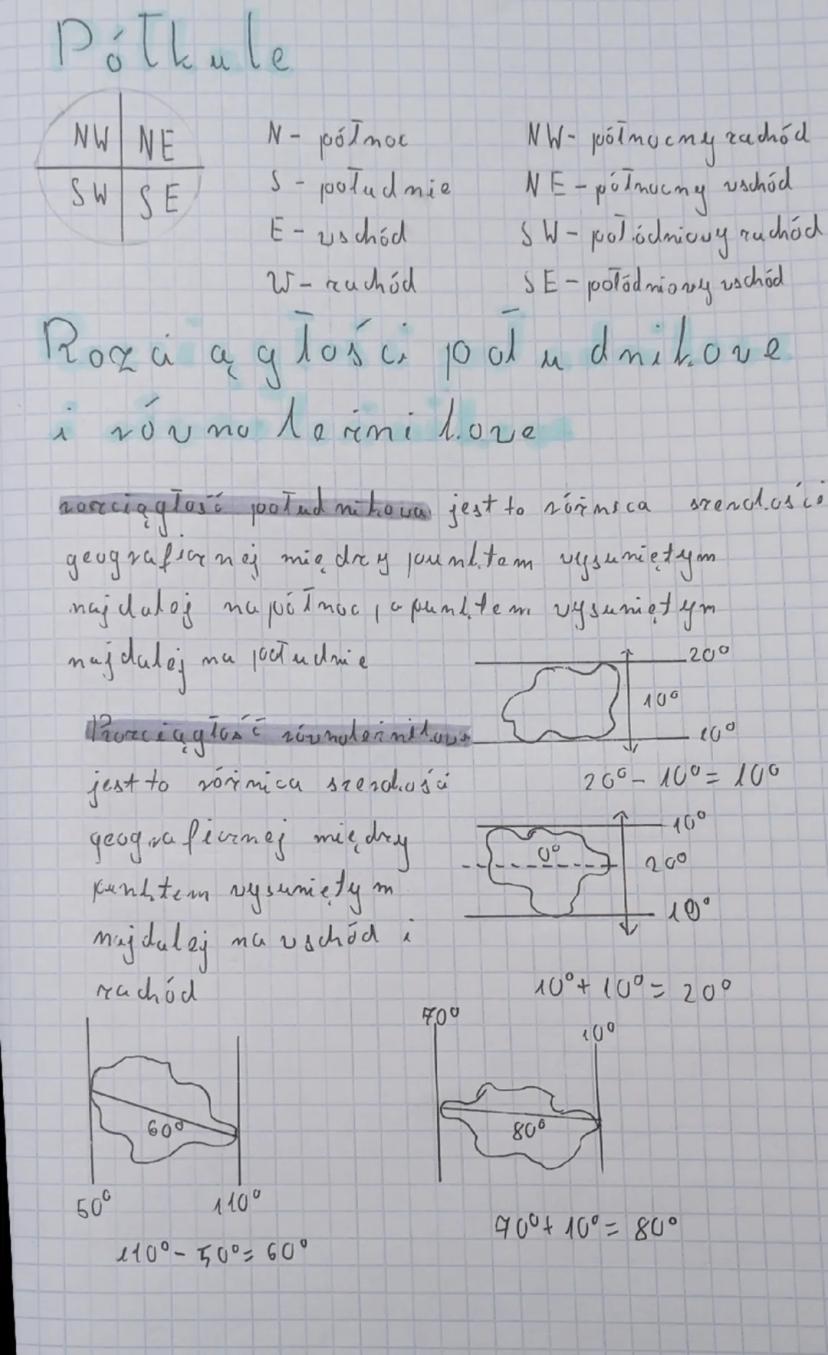 Półkule
NW NE
SW SE
N - północ
S - południe
E - wschód
W - zachód
NW - północny zachód
NE - północny wschód
SW - połódniowy zachód
SE - połódniowy wschód
Rozciągłości południkowe
i równoleżnikowe
rozciągłość południkowa jest to różnica szerokości
geograficznej między punktem wysuniętym
najdalej na północ, a punktem wysuniętym
najdalej na południe
20°
10°
10°
20° - 10° = 10°
Rozciągłość równoleżnikowa
jest to różnica szerokości
geograficznej między
punktem wysuniętym
najdalej na wschód i
zachód
10°
0°
20°
10°
10° + 10° = 20°
60°
50° 110°
110° - 50° = 60°
70° 10°
80°
70° + 10° = 80°